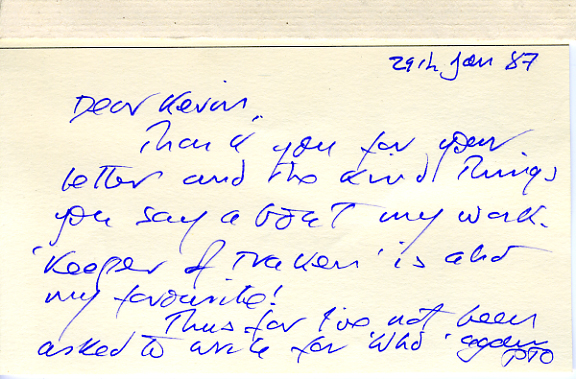 29th Jan 87
Dear Kevin,
Thank you for your
letter and the kind things
you say about my work.
'Keeper of Traken' is also
my favourite!
Thus far I've not been
asked to write for 'Who' again
PTO